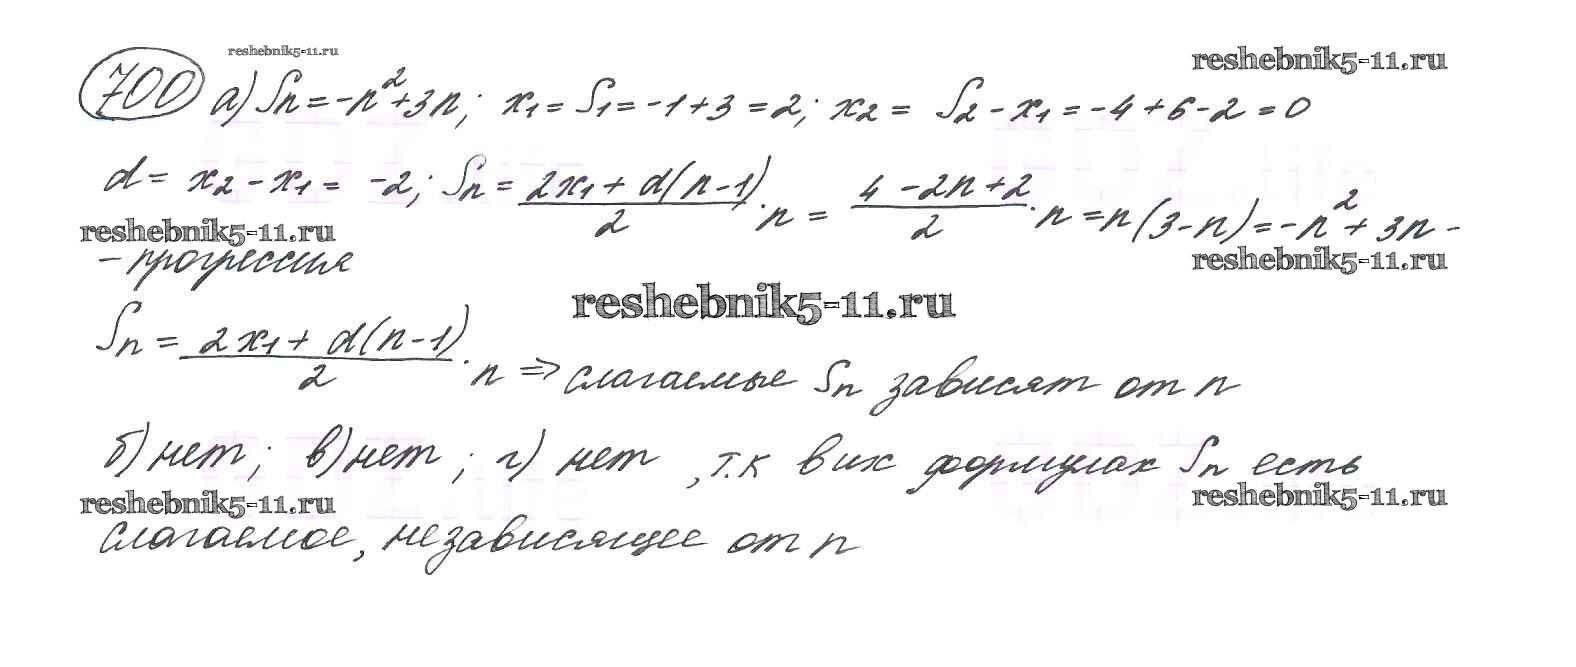 reshebnik5-11.ru
reshebnik5-11.ru
700 а) Sn = -n² + 3n; x₁ = S₁ = -1 + 3 = 2; x₂ = S₂ - x₁ = -4 + 6 - 2 = 0
d = x₂ - x₁ = -2; Sn = (2x₁ + d(n-1))/2 · n = (4 - 2n + 2)/2 · n = n(3-n) = -n² + 3n -
reshebnik5-11.ru
- прогрессия
reshebnik5-11.ru
reshebnik5-11.ru
Sn = (2x₁ + d(n-1))/2 · n ⇒ слагаемые Sn зависят от n
б) нет; в) нет; г) нет, т.к в их формулах Sn есть
reshebnik5-11.ru
reshebnik5-11.ru
слагаемое, независящее от n